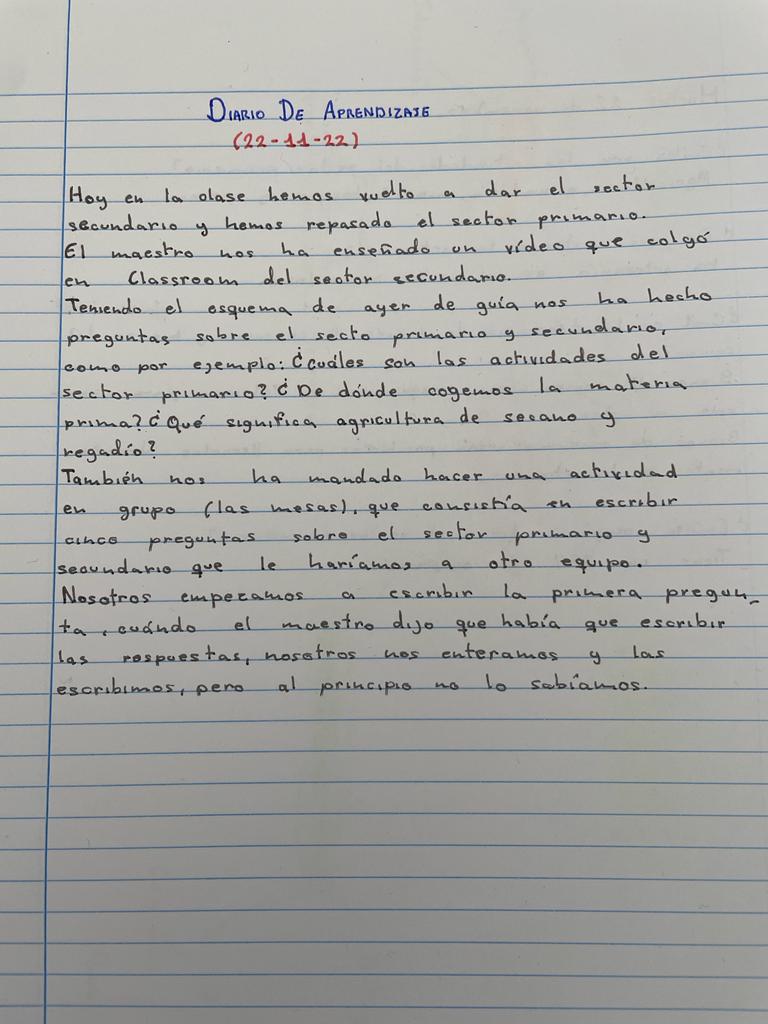 DIARIO DE APRENDIZAJE
(22-11-22)
Hoy en la clase hemos vuelto a dar el sector
secundario y hemos repasado el sector primario.
El maestro nos ha enseñado un vídeo que colgó
en Classroom del sector secundario.
Teniendo el esquema de ayer de guía nos ha hecho
preguntas sobre el secto primario y secundario,
como por ejemplo: ¿cuáles son las actividades del
sector primario? ¿De dónde cogemos la materia
prima? ¿Qué significa agricultura de secano y
regadío?
También nos ha mandado hacer una actividad
en grupo (las mesas), que consistía en escribir
cinco preguntas sobre el sector primario y
secundario que le haríamos a otro equipo.
Nosotros empezamos a escribir la primera pregun-
ta, cuándo el maestro dijo que había que escribir
las respuestas, nosotros nos enteramos y las
escribimos, pero al principio no lo sabíamos.